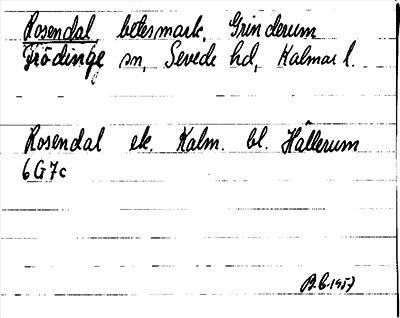 Rosendal betesmark, Grinderum
Frödinge sn, Sevede hd, Kalmar l.
Rosendal ek. Kalm. bl. Hällerum
6G7c
B.C. 1957